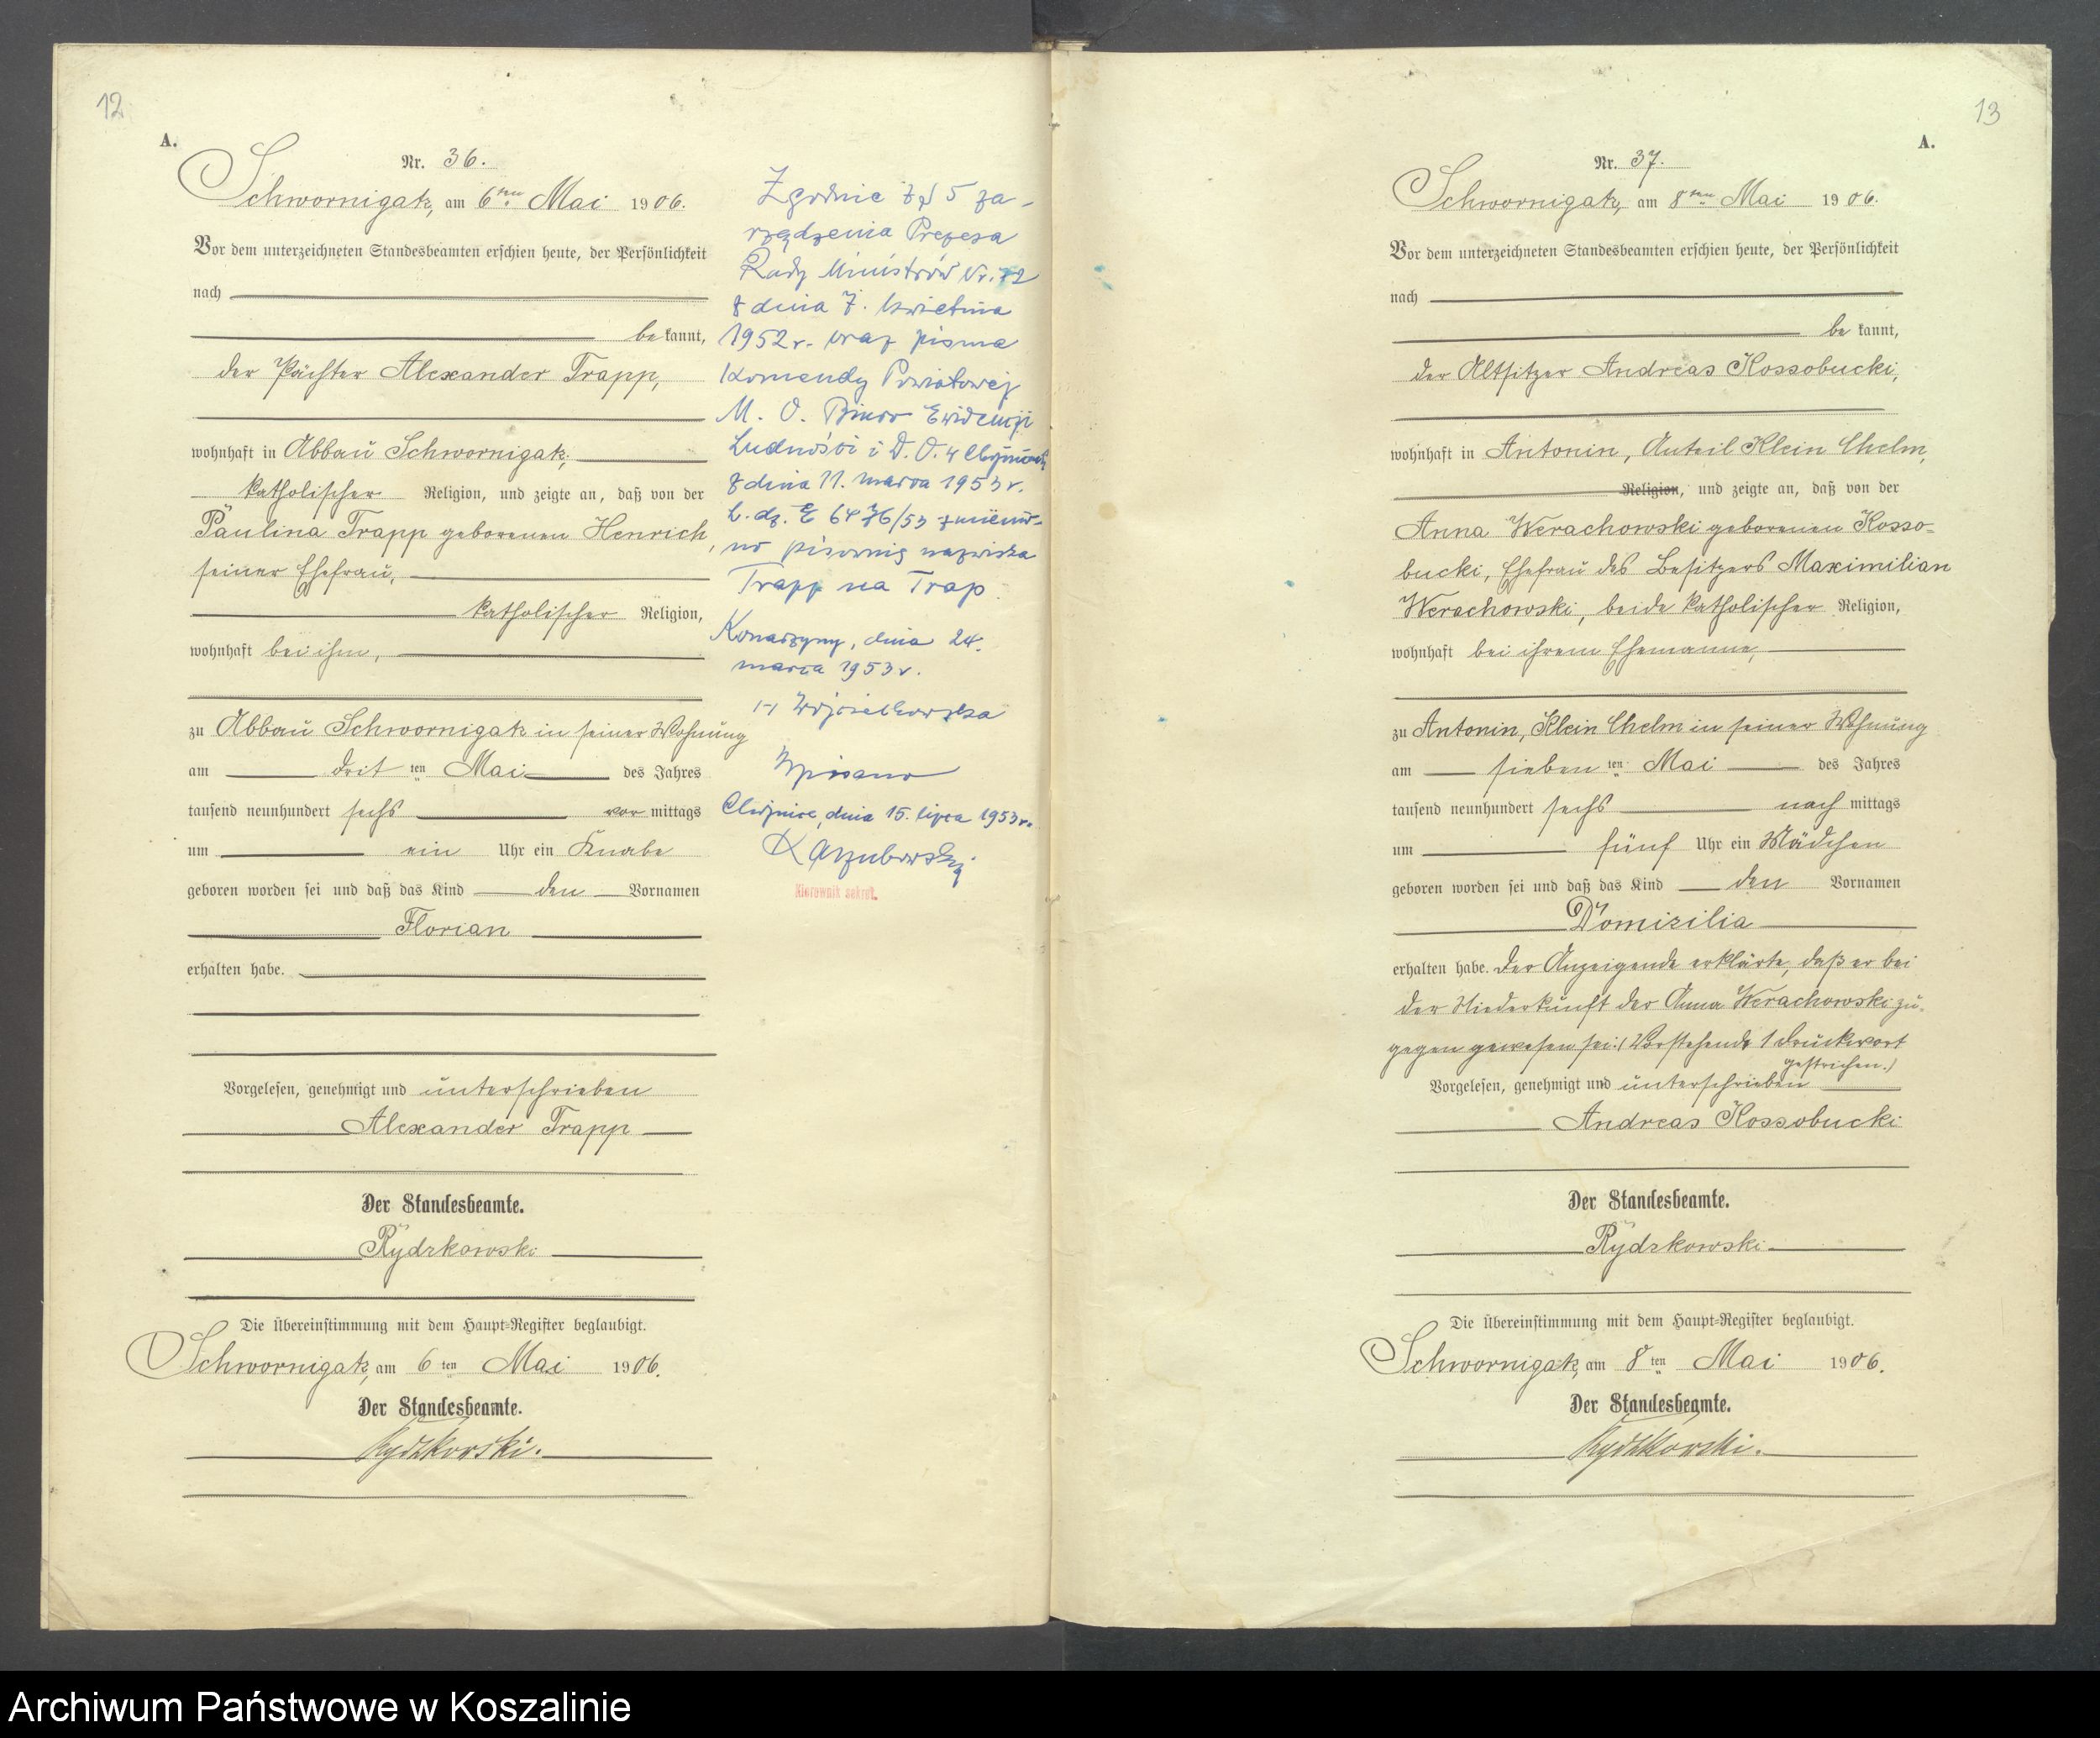 12
A.
Nr. 36.
Schwornigatz, am 6ten Mai 1906.
Vor dem unterzeichneten Standesbeamten erschien heute, der Persönlichkeit
nach
be kannt,
der Pächter Alexander Trapp,
wohnhaft in Abbau Schwornigatz,
katholischer Religion, und zeigte an, daß von der
Paulina Trapp geborenen Henrich,
seiner Ehefrau,
katholischer Religion,
wohnhaft bei ihm,
zu Abbau Schwornigatz in seiner Wohnung
am dritten Mai des Jahres
tausend neunhundert sechs vor mittags
um ein Uhr ein Knabe
geboren worden sei und daß das Kind den Vornamen
Florian
erhalten habe.
Vorgelesen, genehmigt und unterschrieben
Alexander Trapp
Der Standesbeamte.
Rydzkowski
Die Übereinstimmung mit dem Haupt-Register beglaubigt.
Schwornigatz, am 6ten Mai 1906.
Der Standesbeamte.
Rydzkowski.
Zgodnie z § 5 za-
rządzenia Prezesa
Rady Ministrów Nr. 72
z dnia 7. kwietnia
1952 r. oraz pisma
Komendy Powiatowej
M. O. Biuro Ewidencji
Ludności i D. O. w Chojnicach
z dnia 11. marca 1953 r.
L. dz. E 6476/53 zmienio-
no pisownię nazwiska
Trapp na Trap.
Konarzyny, dnia 24.
marca 1953 r.
Wpisano
Chojnice, dnia 15. lipca 1953 r.
Kierownik sekret.
13
A.
Nr. 37.
Schwornigatz, am 8ten Mai 1906.
Vor dem unterzeichneten Standesbeamten erschien heute, der Persönlichkeit
nach
be kannt,
der Altsitzer Andreas Kossobucki,
wohnhaft in Antonin, Anteil Klein Chelm,
Religion, und zeigte an, daß von der
Anna Werachowski geborenen Kosso-
bucki, Ehefrau des Besitzers Maximilian
Werachowski, beide katholischer Religion,
wohnhaft bei ihrem Ehemanne,
zu Antonin, Klein Chelm in seiner Wohnung
am siebenten Mai des Jahres
tausend neunhundert sechs nach mittags
um fünf Uhr ein Mädchen
geboren worden sei und daß das Kind den Vornamen
Domizilia
erhalten habe. Der Anzeigende erklärte, daß er bei
der Niederkunft der Anna Werachowski zu-
gegen gewesen sei. (Vorstehende 1 Druckwort
gestrichen.)
Vorgelesen, genehmigt und unterschrieben
Andreas Kossobucki
Der Standesbeamte.
Rydzkowski
Die Übereinstimmung mit dem Haupt-Register beglaubigt.
Schwornigatz, am 8ten Mai 1906.
Der Standesbeamte.
Rydzkowski.
Archiwum Państwowe w Koszalinie